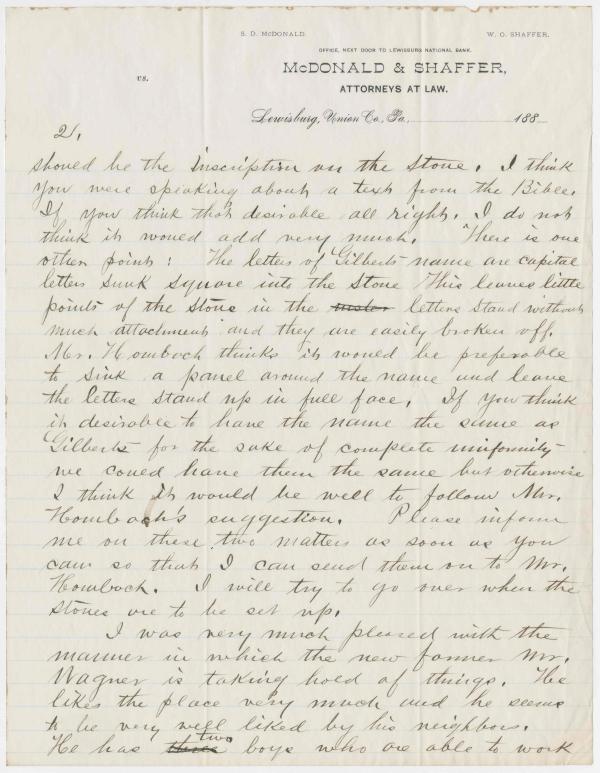 S. D. McDONALD. W. O. SHAFFER.
OFFICE, NEXT DOOR TO LEWISBURG NATIONAL BANK.
vs.
McDONALD & SHAFFER,
ATTORNEYS AT LAW.
Lewisburg, Union Co., Pa. 188
2/.
should be the inscription on the stone. I think
you were speaking about a text from the Bible.
If you think that desirable all right. I do not
think it would add very much. There is one
other point: The letters of Gilberts name are capital
letters sunk square into the stone This leaves little
points of the stone in the letters stand without
much attachment and they are easily broken off.
Mr. Hombach thinks it would be preferable
to sink a panel around the name and leave
the letters stand up in full face. If you think
it desirable to have the name the same as
Gilberts for the sake of complete uniformity
we could have them the same but otherwise
I think it would be well to follow Mr.
Hombach's suggestion. Please inform
me on these two matters as soon as you
can so that I can send them on to Mr.
Hombach. I will try to go over when the
stones are to be set up.
I was very much pleased with the
manner in which the new farmer Mr.
Wagner is taking hold of things. He
likes the place very much and he seems
to be very well liked by his neighbors.
He has three two boys who are able to work